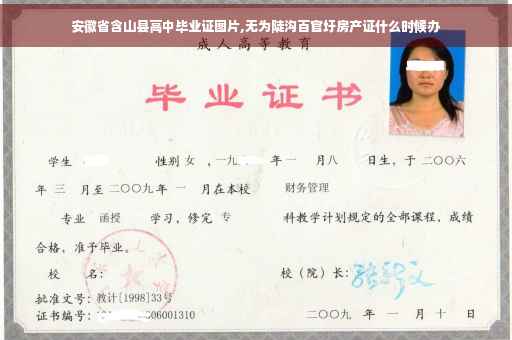 安徽省含山县高中毕业证图片,无为陡沟百官圩房产证什么时候办
成人高等教育
毕业证书
学生 性别 女 ,一九 年一 月八 日生，于二〇〇六
年 三 月至二〇〇九年 一 月在本校 财务管理
专业 函授 学习，修完 专 科教学计划规定的全部课程，成绩
合格，准予毕业。
校 名： 校（院）长：
批准文号：教计[1998]33号
证书编号： 06001310 二〇〇九 年 一 月 十 日